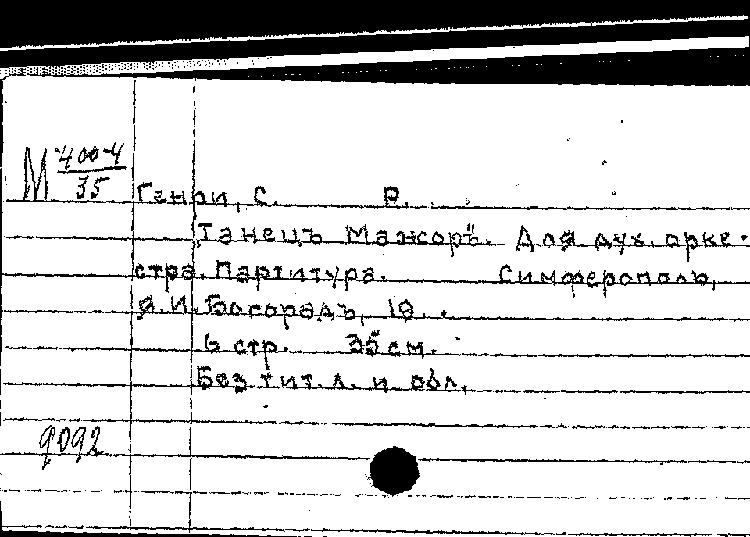 М 400-4
35
Генри, С. Р.
Танецъ Мажоръ. Для дух. орке-
стра. Партитура. Симферополь,
я.И. Босорадъ, 19..
6 стр. 35 см.
Без тит. л. и обл.
9092